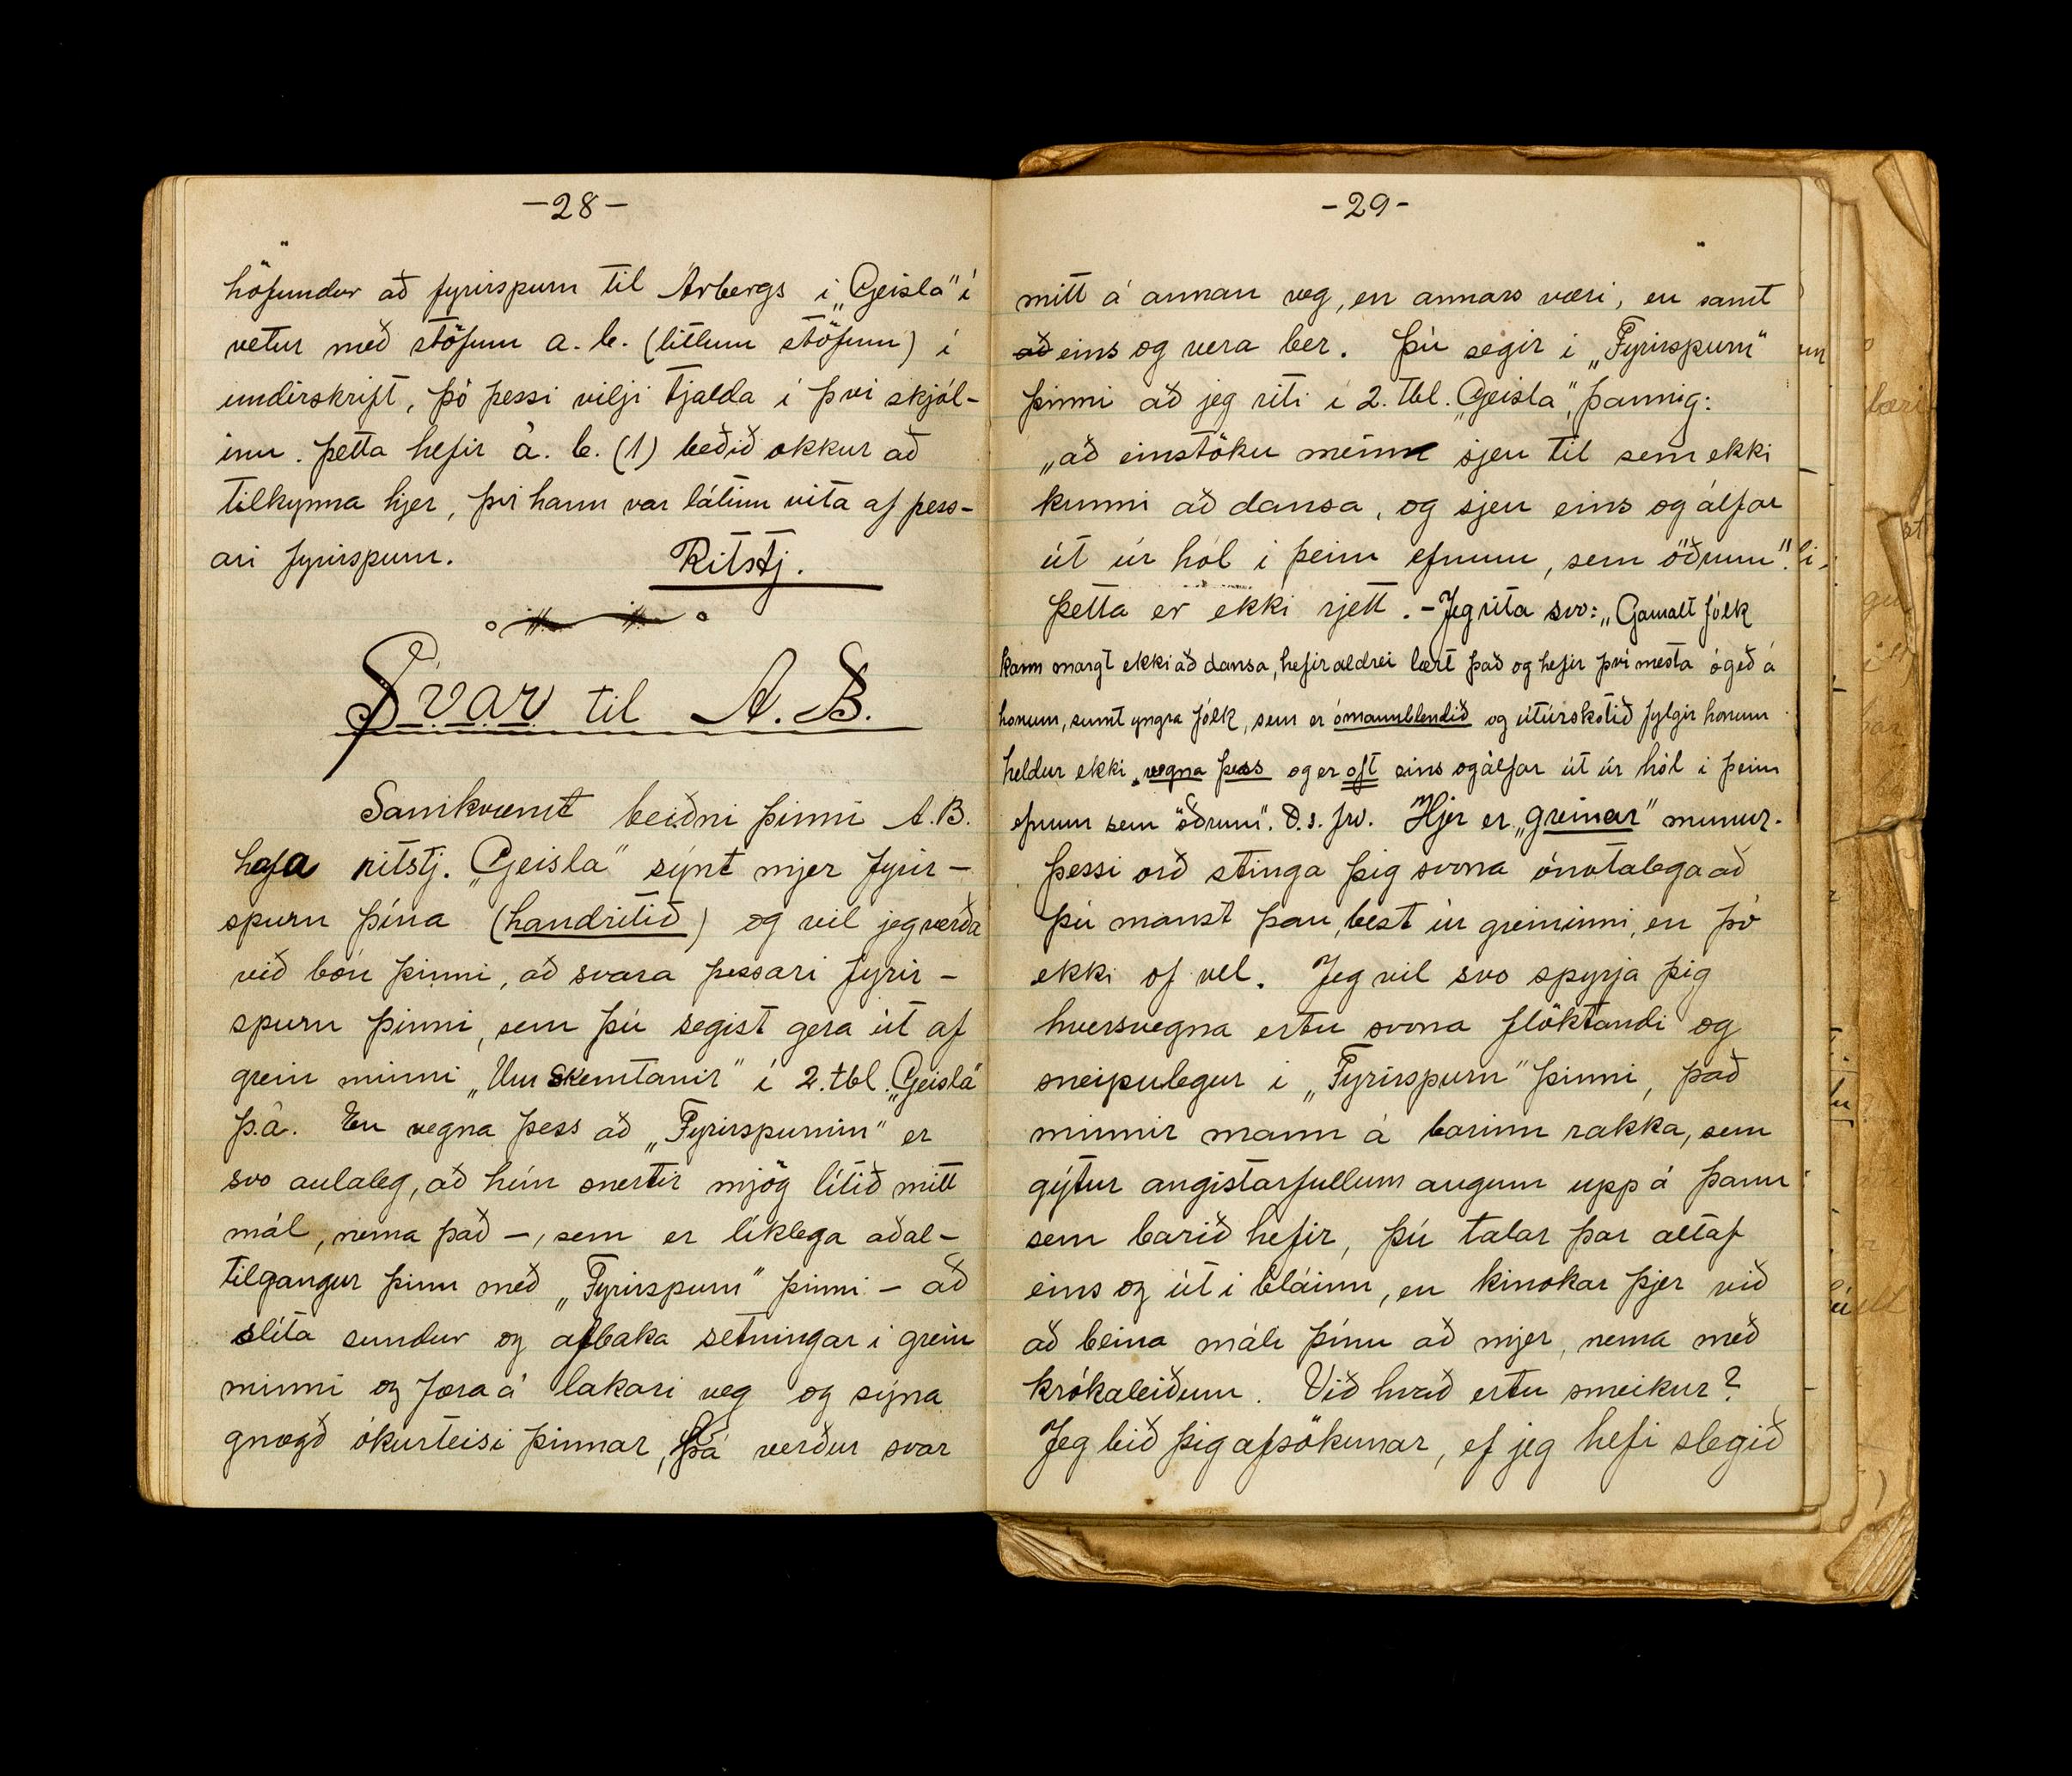 -28-
höfundur að fyrirspurn til Árbergs í „Geisla" í
vetur með stöfum a. b. (litlum stöfum) í
undirskrift, þó þessi vilji tjalda í því skjól-
inu. Þetta hefir a. b. (1) beðið okkur að
tilkynna hjer, því hann var látinn vita af þess-
ari fyrirspurn. Ritstj.
Svar til A. B.
Samkvæmt beiðni þinni A.B.
hafa ritstj. „Geisla" sýnt mjer fyrir-
spurn þína (handritið) og vil jeg verða
við bón þinni, að svara þessari fyrir-
spurn þinni, sem þú segist gera út af
grein minni „Um Skemtanir" í 2. tbl. „Geisla"
þ.á. En vegna þess að „Fyrirspurnin" er
svo aulaleg, að hún snertir mjög lítið mitt
mál, nema það -, sem er líklega aðal-
tilgangur þinn með „Fyrirspurn" þinni - að
slíta sundur og afbaka setningar í grein
minni og færa á lakari veg og sýna
gnægð ókurteisi þinnar, þá verður svar
-29-
mitt á annan veg, en annars væri, en samt
að eins og vera ber. Þú segir í „Fyrirspurn"
þinni að jeg riti í 2. tbl. „Geisla", þannig:
„að einstöku menn sjeu til sem ekki
kunni að dansa, og sjeu eins og álfar
út úr hól í þeim efnum, sem öðrum".
Þetta er ekki rjett. - Jeg rita svo: „Gamalt fólk
kann margt ekki að dansa, hefir aldrei lært það og hefir því mesta ógeð á
honum, sumt yngra fólk, sem er ómannblendið og útúrskotið fylgir honum
heldur ekki vegna þess og er oft eins og álfar út úr hól í þeim
efnum sem öðrum". O.s.frv. Hjer er „greinar" munur.
Þessi orð stinga þig svona ónotalega að
þú manst þau best úr greininni, en þó
ekki of vel. Jeg vil svo spyrja þig
hversvegna ertu svona flöktandi og
sneipulegur í „Fyrirspurn" þinni, það
minnir mann á barinn rakka, sem
gýtur angistarfullum augum upp á þann
sem barið hefir, þú talar þar altaf
eins og út í bláinn, en kinokar þjer við
að beina máli þínu að mjer, nema með
krókaleiðum. Við hvað ertu smeikur?
Jeg bið þig afsökunar, ef jeg hefi slegið